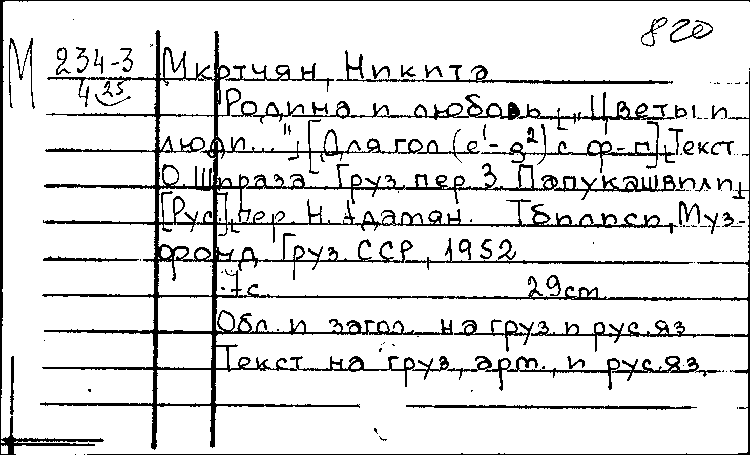 820
М 234-3 Мкртчян, Никита
4 25 Родина и любовь. „Цветы и
люди..."; [Для гол (e¹-g²) с ф-п]. Текст
О. Шираза. Груз. пер. З. Папукашвили,
[Рус]. пер. Н. Адамян. Тбилиси, Муз-
фонд Груз. ССР, 1952
7 с. 29 cm
Обл. и загол. на груз. и рус. яз.
Текст на груз., арм., и рус. яз.